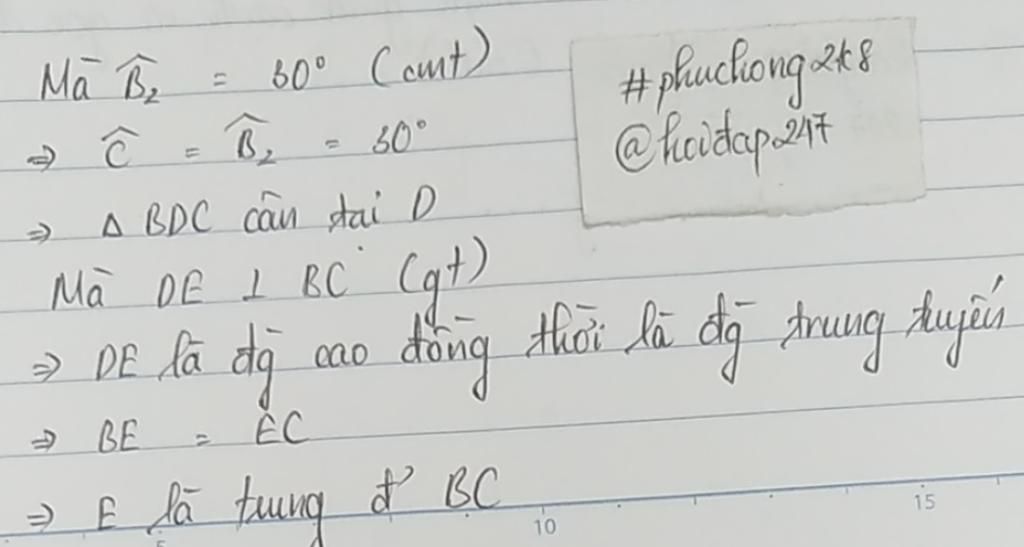 Mà B̂₂ = 30° (cmt)
⇒ Ĉ = B̂₂ = 30°
⇒ Δ BDC cân tại D
Mà DE ⊥ BC (gt)
⇒ DE là đg̀ cao đồng thời là đg̀ trung tuyến
⇒ BE = EC
⇒ E là trung đ' BC
#phuchong2k8
@hoidap247
10
15